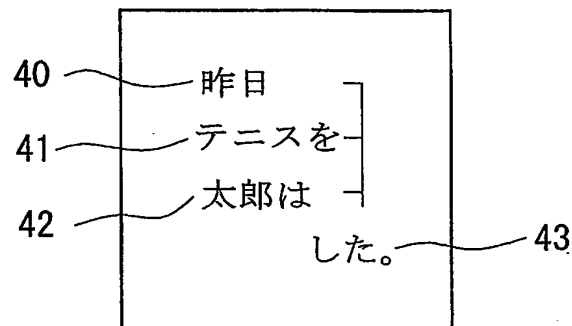 40 昨日
41 テニスを
42 太郎は
した。 43